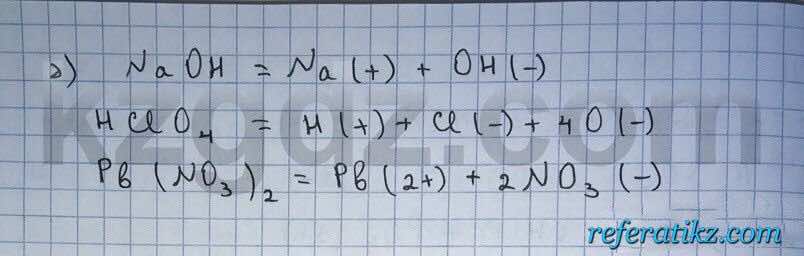 г) NaOH = Na(+) + OH(-)
HClO4 = H(+) + Cl(-) + 4O(-)
Pb(NO3)2 = Pb(2+) + 2NO3(-)
kzgdz.com
referatikz.com